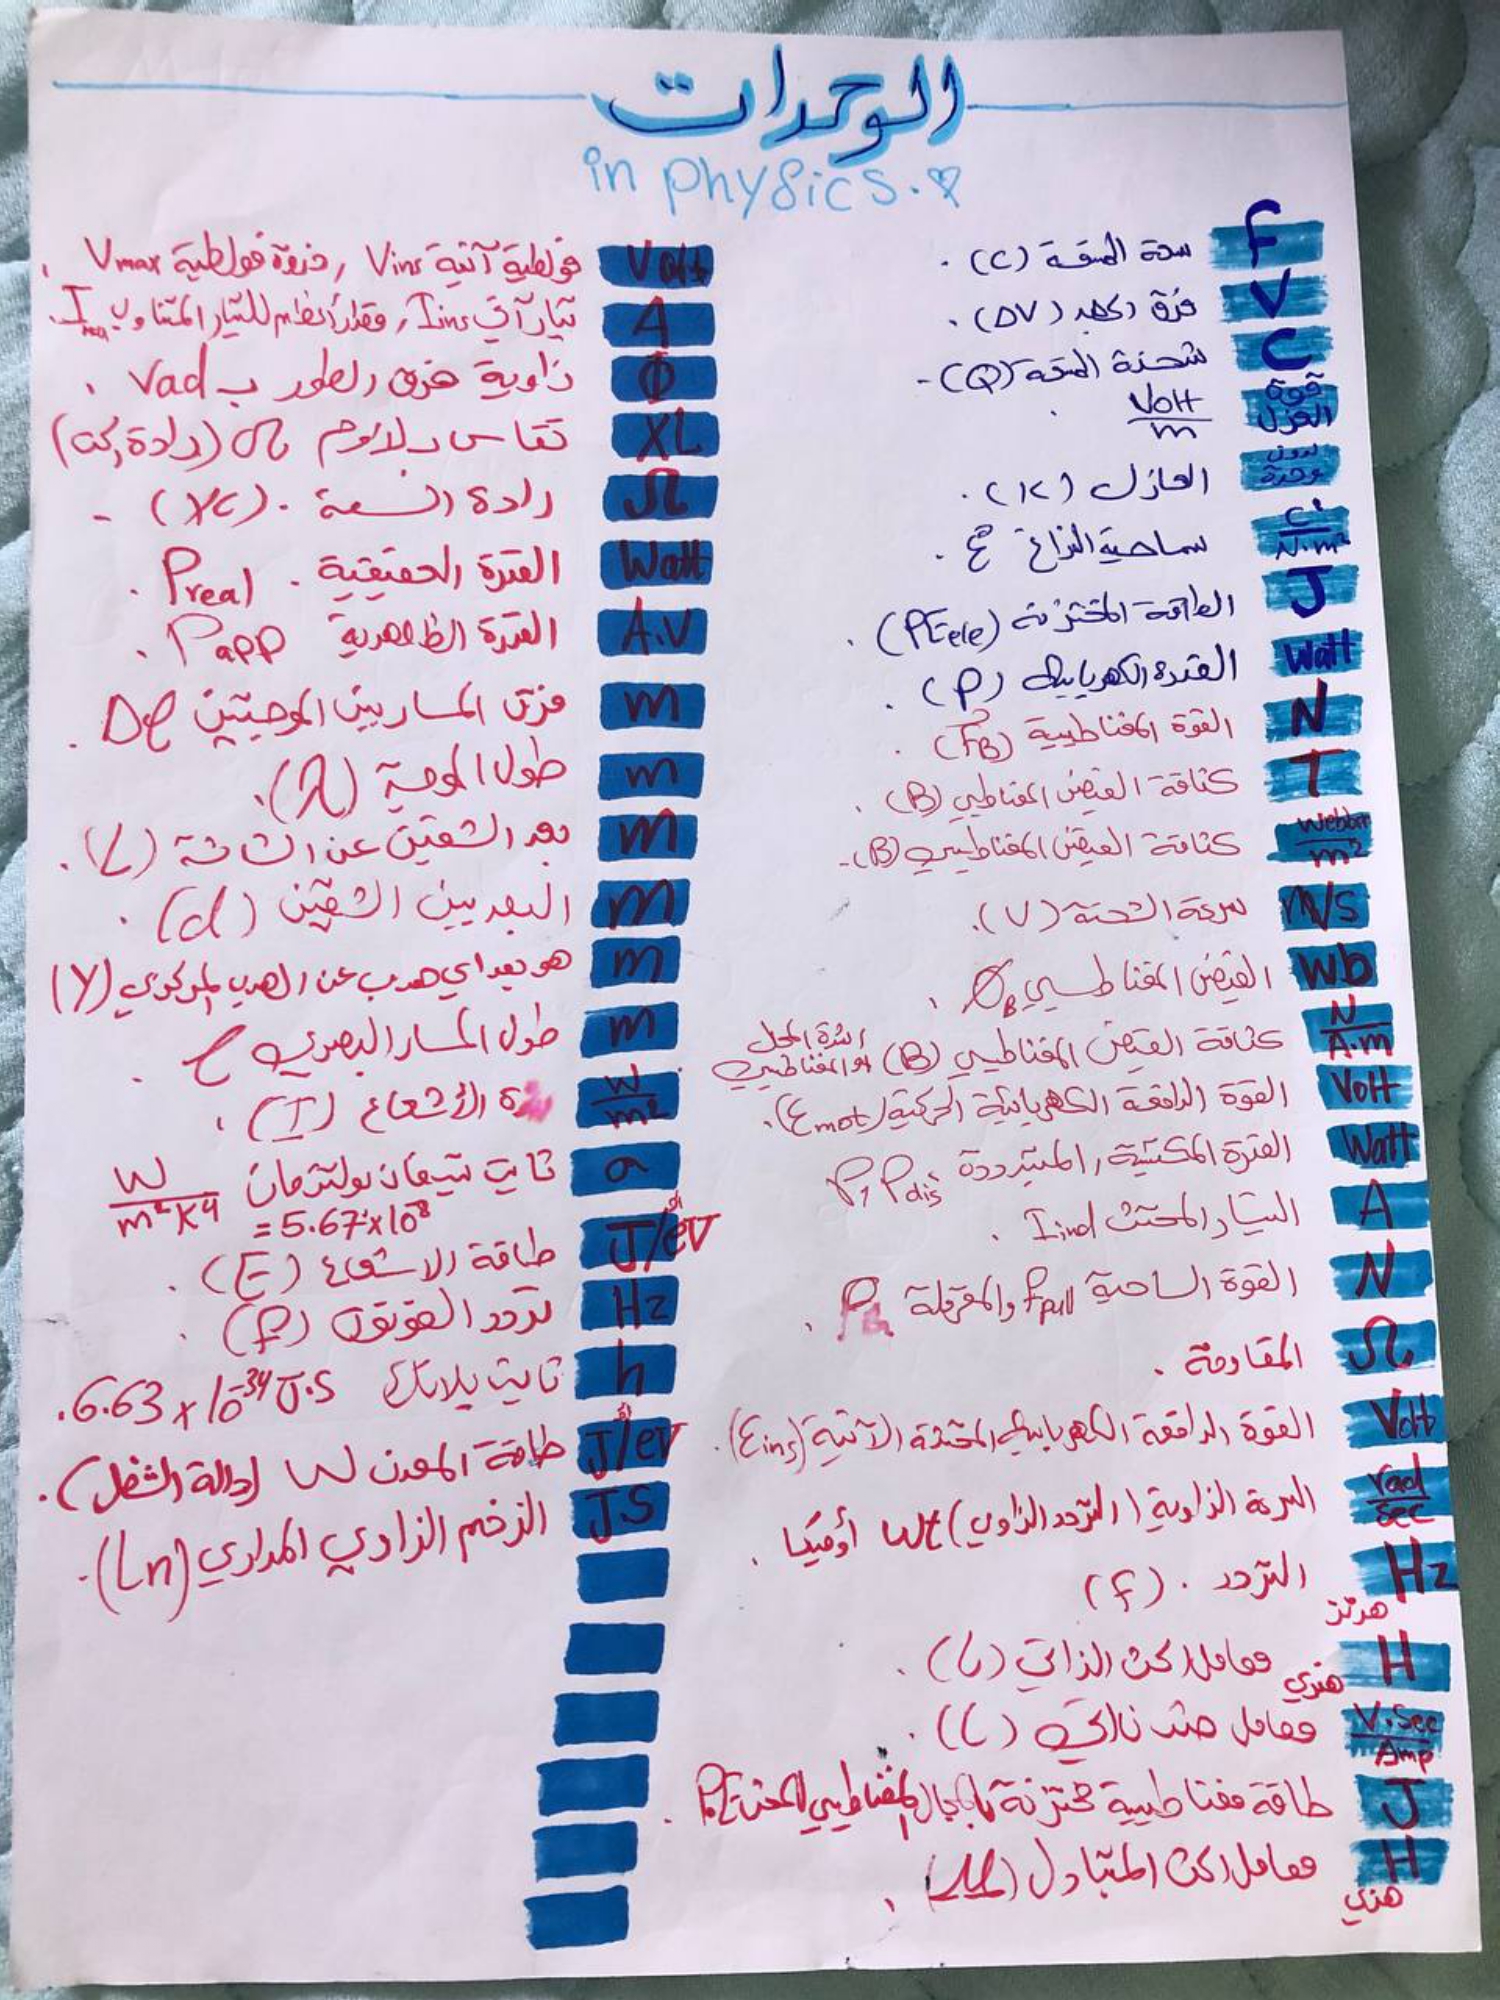 الوحدات
in physics.
F سعة المتسعة (C).
V فرق الجهد (ΔV).
C شحنة المتسعة (Q).
قوة العزل Volt/m
بدون وحدة العازل (K).
C²/N.m² سماحية الفراغ ε.
J الطاقة المختزنة (PEele).
Watt القدرة الكهربائية (P).
N القوة المغناطيسية (FB).
T كثافة الفيض المغناطيسي (B).
Webber/m² كثافة الفيض المغناطيسي (B).
m/s سرعة الشحنة (V).
Wb الفيض المغناطيسي ØB.
N/A.m كثافة الفيض المغناطيسي (B) او شدة المجال المغناطيسي
Volt القوة الدافعة الكهربائية الحركية (Emot).
Watt القدرة المكتسبة, المتبددة P, Pdis
A التيار المحتث Iind.
N القوة الساحبة Fpull والمعرقلة
Ω المقاومة.
Volt القوة الدافعة الكهربائية المحتثة الآنية (Eins).
rad/sec السرعة الزاوية (التردد الزاوي) wt أوميكا.
Hz التردد. (f)
هرتز
H هنري معامل الحث الذاتي (L).
V.Sec/Amp معامل حث ذاتي (L).
J طاقة مغناطيسية مختزنة بالمجال المغناطيسي للمحث PE.
H معامل الحث المتبادل (M).
هنري
Volt فولطية آنية Vins, ذروة فولطية Vmax.
A تيار آني Iins, مقدار أعظم للتيار المتناوب Im.
Φ زاوية فرق الطور بـ rad.
XL تقاس بالاوم Ω (رادة الحث)
Ω رادة السعة. (XC) -
Watt القدرة الحقيقية. Preal.
A.V القدرة الظاهرية Papp.
m فرق المسار بين الموجتين Δl.
m طول الموجة (λ).
m بعد الشقين عن الشاشة (L).
m البعد بين الشقين (d).
m هو بعد اي هدب عن الهدب المركزي (Y)
m طول المسار البصري l.
W/m² شدة الأشعاع (I).
σ ثابت ستيفان بولتزمان W/m²K4
= 5.67x10⁸
J/eV أو طاقة الاشعاع (E).
Hz تردد الفوتون (f).
h ثابت بلانك 6.63 x 10⁻³⁴ J.s.
J/eV أو طاقة المعدن W (دالة الشغل).
JS الزخم الزاوي المداري (Ln).